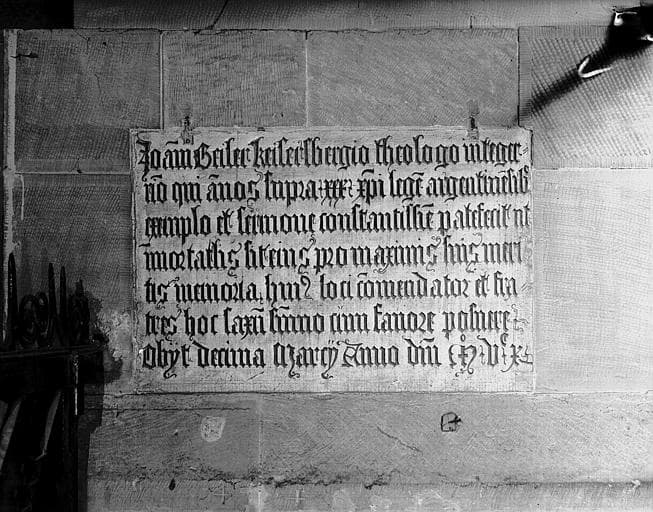 Joāni Geiler keisersbergio theologo integer-
rīo qui ānos supra xxx xp̄i legē argentinēsibꝰ
exemplo et sermone constantissīe patefecit nt
īmortalis sit eius pro maximis suis meri
tis memoria huiꝰ loci cōmendator et fra
tres hoc saxū sūmo cum favore posuere
Obyt decima Marcÿ Anno dm̄ M·v·x